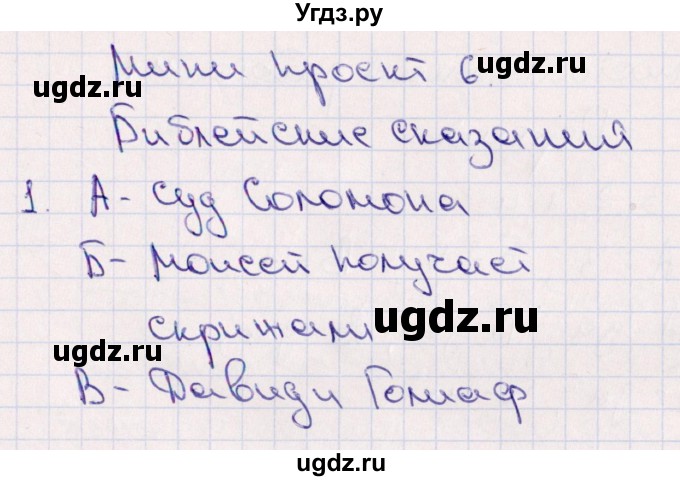 Угдз.ру
Мини проект 6.
ugdz.ru ugdz.ru
Библейские сказания
1. А - Суд Соломона
ugdz.ru ugdz.ru
Б - Моисей получает
скрижали
ugdz.ru
ugdz.ru
В - Давид и Голиаф
ugdz.ru
ugdz.ru